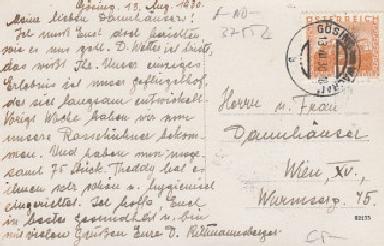 Gösing, 13. Aug. 1930.
Meine lieben Dannhäuser!
Ich muß Euch doch berichten,
wie es uns geht. D. Wetter ist trist,
das wißt Ihr. Unser einziges
Erlebnis ist unser Geflügelhof,
der sich langsam entwickelt.
Vorige Woche haben wir
unsere Rassehühner bekom-
men. Und haben nun insge-
samt 75 Stück. Freddy hat es
ihnen sehr schön u. hygienisch
eingerichtet. Ich hoffe, Euch
in bester Gesundheit u. bin
mit vielen Grüßen Eure D.
ÖSTERREICH
GÖSING
Herrn u. Frau
Dannhäuser
Wien, XV.,
Wurmserg. 45.